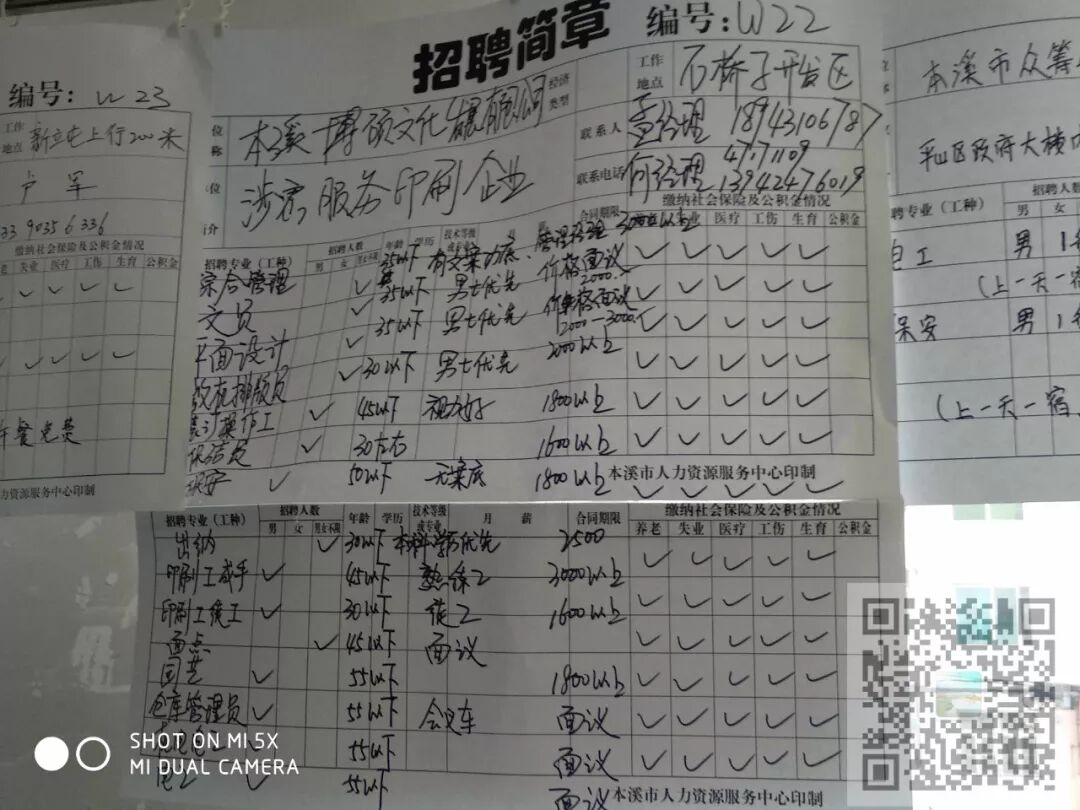 招聘简章 编号:W22
单位名称 本溪博硕文化传媒有限公司 经济类型
工作地点 石桥子开发区
联系人 孟经理 18943106787
47.71109
联系电话 何经理 13942476019
涉密 服务 印刷 企业
缴纳社会保险及公积金情况
招聘专业(工种) 招聘人数 年龄 学历 技术等级 合同期限
男 女 男女不限 失业 医疗 工伤 生育 公积金
综合管理 ✓ 35以下 有文案功底、管理经验 3000以上 ✓ ✓ ✓ ✓ ✓
文员 ✓ 35以下 男士优先 价格面议 2000 ✓ ✓ ✓ ✓ ✓
平面设计 ✓ 35以下 男士优先 价格面议 2000-3000 ✓ ✓ ✓ ✓ ✓
排版员 ✓ 30以下 男士优先 2000以上 ✓ ✓ ✓ ✓ ✓
操作工 ✓ 45以下 视力好 1800以上 ✓ ✓ ✓ ✓ ✓
保洁员 ✓ 30左右 1600以上 ✓ ✓ ✓ ✓ ✓
保安 ✓ 50以下 无案底 1800以上 ✓ ✓ ✓ ✓ ✓
本溪市人力资源服务中心印制
招聘专业(工种) 招聘人数 年龄 学历 技术等级或专业 月 薪 合同期限 缴纳社会保险及公积金情况
男 女 男女不限 养老 失业 医疗 工伤 生育 公积金
出纳 ✓ 30以下 本科学历优先 2500 ✓ ✓ ✓ ✓ ✓
印刷工成手 ✓ 45以下 熟练工 3000以上 ✓ ✓ ✓ ✓ ✓
印刷工徒工 ✓ 30以下 徒工 1600以上 ✓ ✓ ✓ ✓ ✓
面点 ✓ 45以下 面议 ✓ ✓ ✓ ✓ ✓
园艺 ✓ 55以下 1800以上 ✓ ✓ ✓ ✓ ✓
仓库管理员 ✓ 55以下 会叉车 面议 ✓ ✓ ✓ ✓ ✓
55以下 面议
电工 55以下 面议
本溪市人力资源服务中心印制
编号: W23
工作地点 新立屯上行200米
卢军
3390356336
缴纳社会保险及公积金情况
失业 医疗 工伤 生育 公积金
✓ ✓ ✓ ✓ ✓
✓ ✓ ✓ ✓ ✓
午餐免费
人力资源服务中心印制
本溪市众筹
平山区政府大楼
聘专业(工种) 招聘人数
男 女
男 1
(上一天一宿
保安 男 1
(上一天一宿
SHOT ON MI 5X
MI DUAL CAMERA